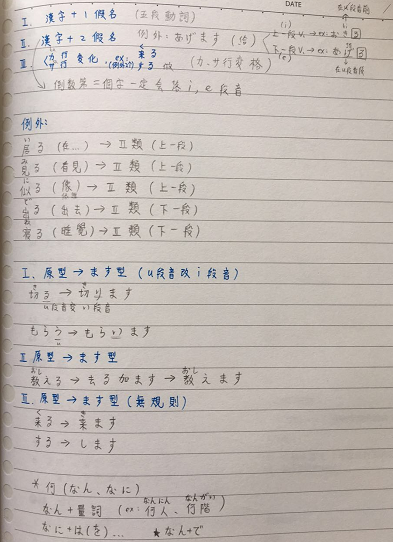 DATE
I. 漢字+1假名 (五段動詞)
II. 漢字+2假名 例外:あげます(給)
上一段v. → ex: おきる
下一段v. → ex: おける
III. カ行 サ行 変化 (例外) ex: 来る する 做 (カ.サ行変格)
→ 倒數第二個字一定會是i,e段音
例外:
居る (在...) → II類 (上一段)
見る (看見) → II類 (上一段)
似る (像) → II類 (上一段)
出る (出去) → II類 (下一段)
寝る (睡覺) → II類 (下一段)
I、原型→ます型 (u段音改i段音)
切る → 切ります
u段音變i段音
もらう → もらいます
II 原型→ます型
教える → 去る加ます → 教えます
III. 原型→ます型 (無規則)
来る → 来ます
する → します
* 何 (なん、なに)
なん+量詞 (ex: 何人、何階)
なに+は(を)... ★なん+で